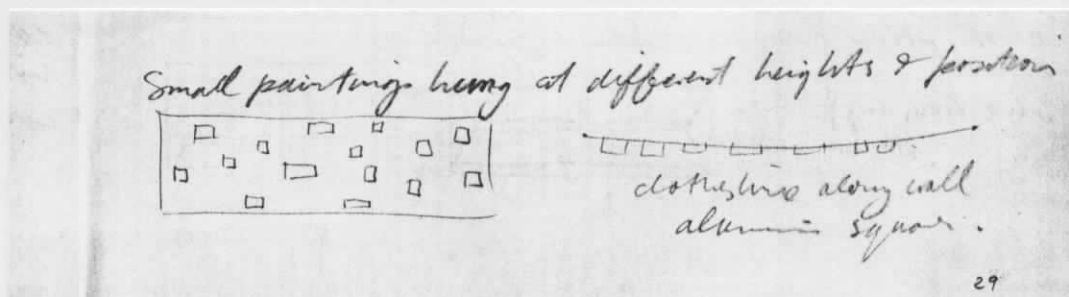 Small paintings hung at different heights & positions
clothesline along wall
aluminium square.
29